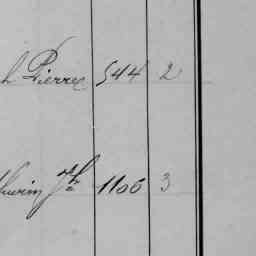 h Pierre 544 2
thurin Jh 1106 3